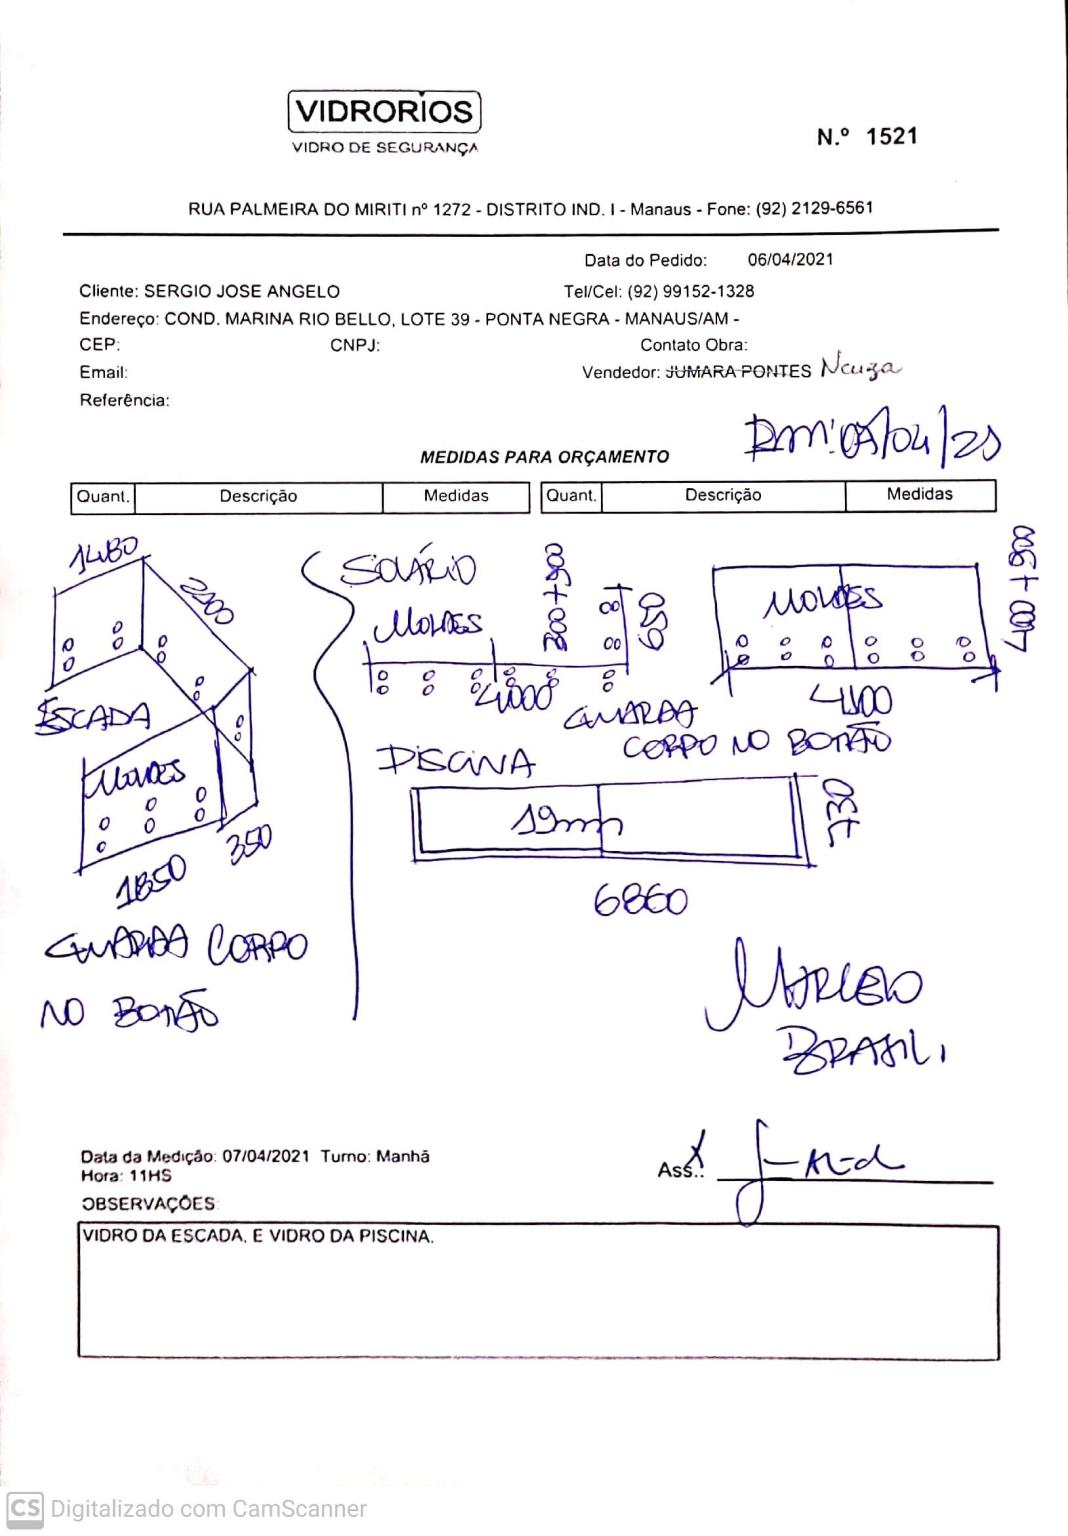 VIDRORIOS
VIDRO DE SEGURANÇA
N.º 1521
RUA PALMEIRA DO MIRITI nº 1272 - DISTRITO IND. I - Manaus - Fone: (92) 2129-6561
Data do Pedido: 06/04/2021
Cliente: SERGIO JOSE ANGELO Tel/Cel: (92) 99152-1328
Endereço: COND. MARINA RIO BELLO, LOTE 39 - PONTA NEGRA - MANAUS/AM -
CEP: CNPJ: Contato Obra:
Email: Vendedor: JUMARA PONTES Neuza
Referência:
MEDIDAS PARA ORÇAMENTO
Quant. Descrição Medidas Quant. Descrição Medidas
1480
2100
ESCADA
MOLDES
350
1850
GUARDA CORPO
NO BOTÃO
SOLÁRIO
MOLDES
300+500
650
4000
MOLDES
400+500
4100
GUARDA
CORPO NO BOTÃO
PISCINA
19mm
730
6860
MARCELO
BRASIL
Data da Medição: 07/04/2021 Turno: Manhã
Hora: 11HS
Ass.: X
OBSERVAÇÕES
VIDRO DA ESCADA. E VIDRO DA PISCINA.
CS Digitalizado com CamScanner